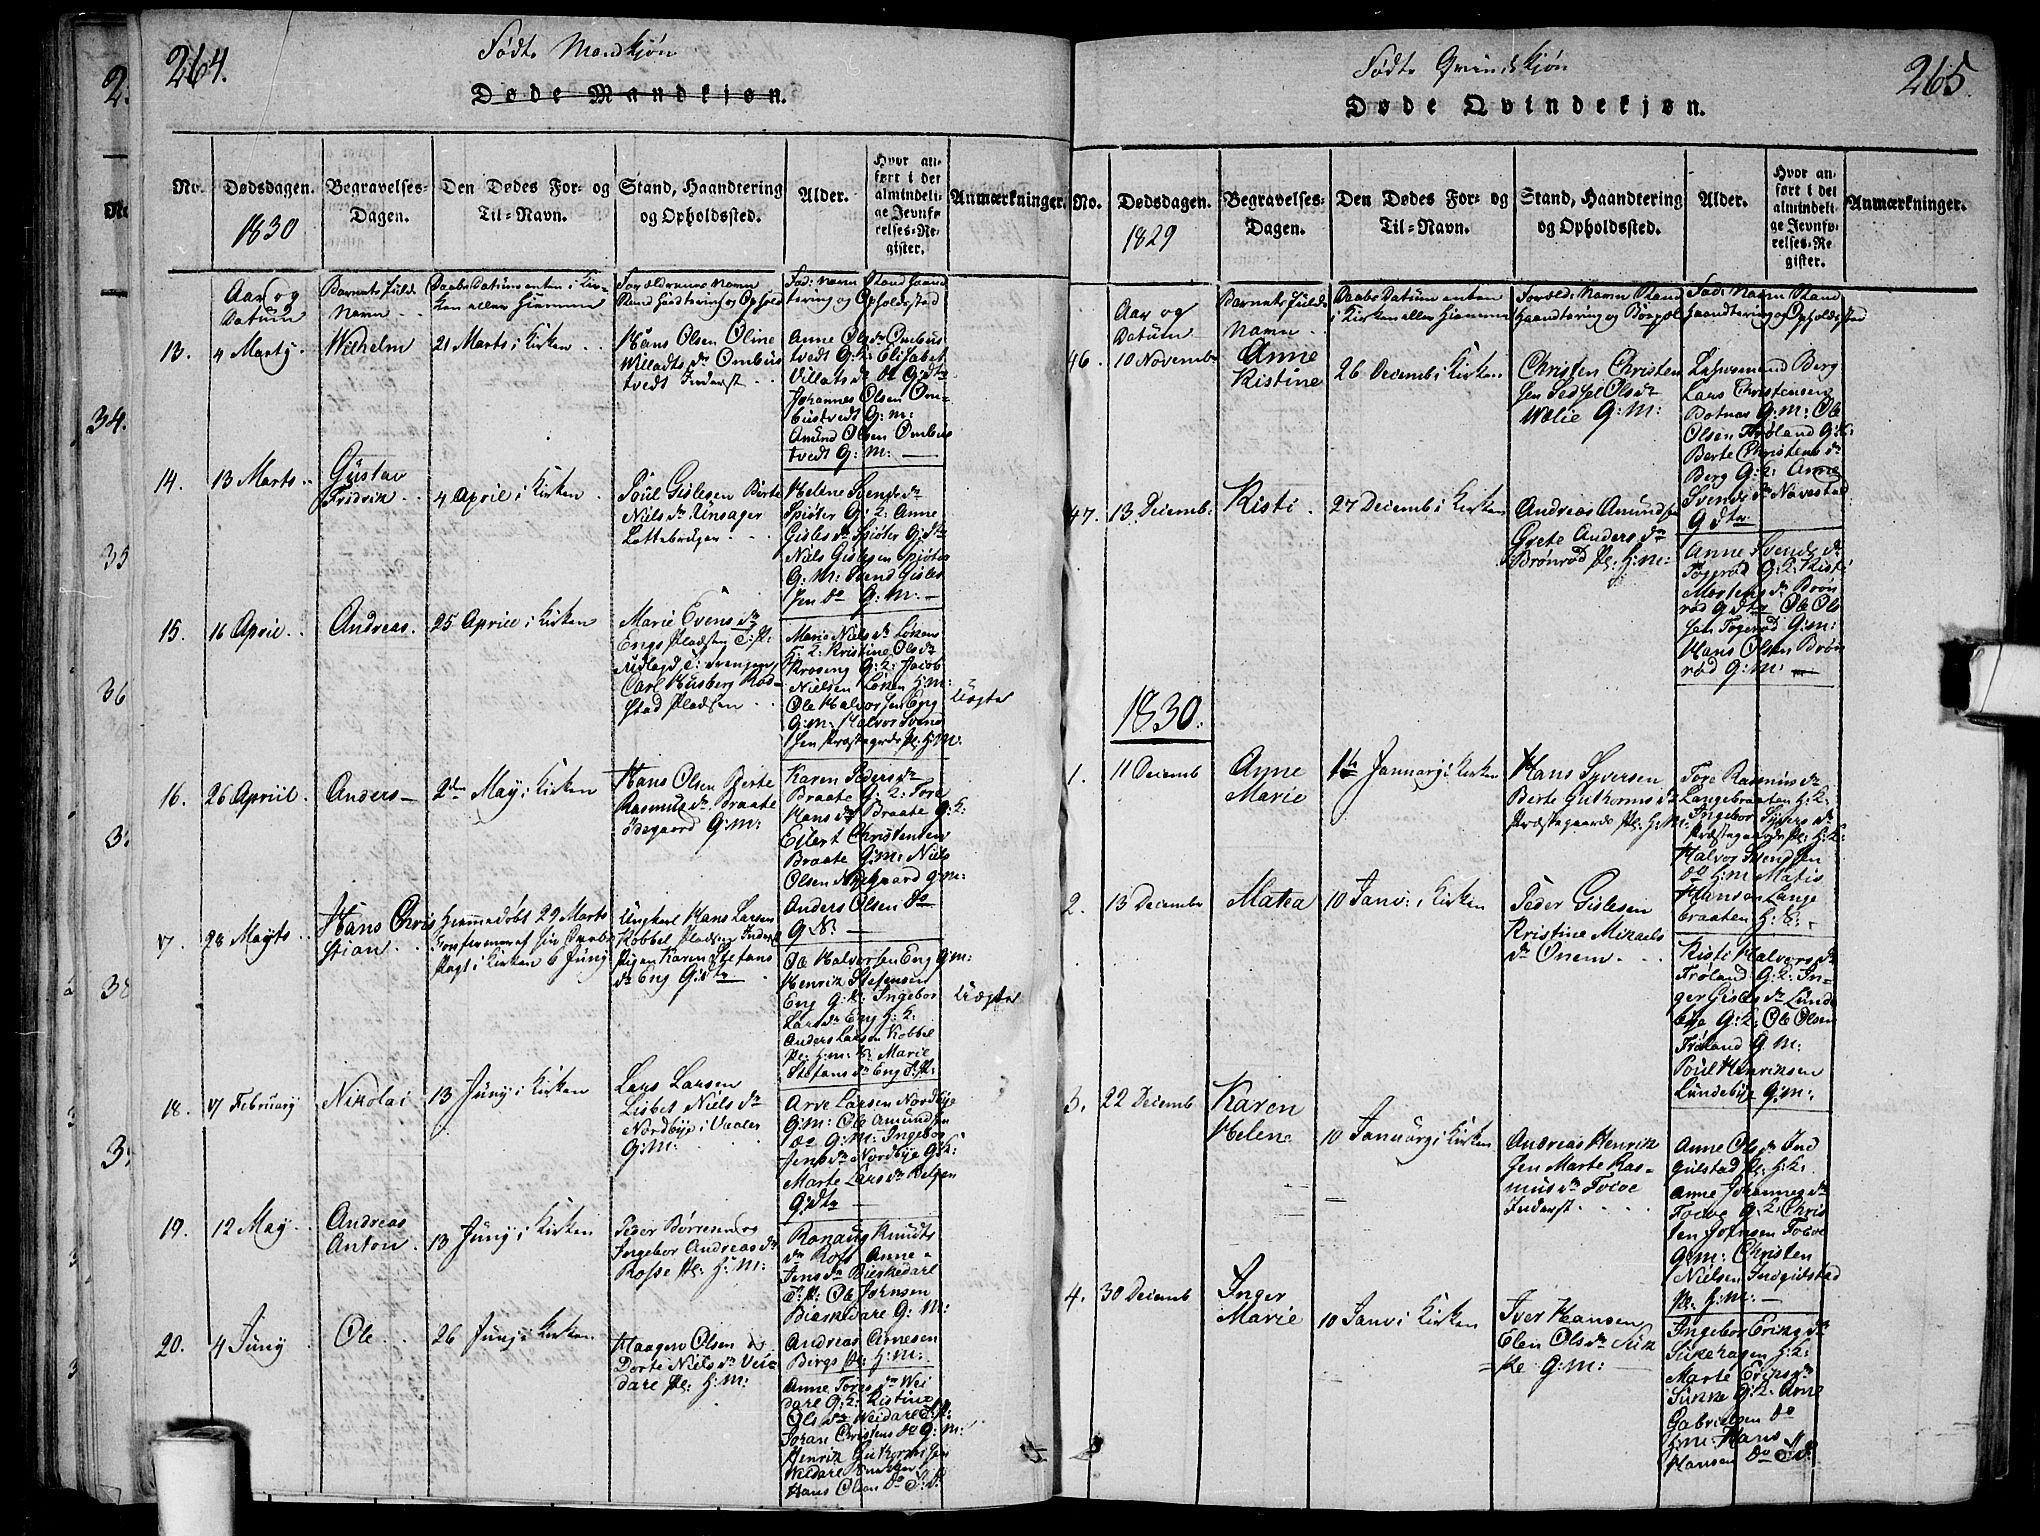 264.
Fødte Mandkjøn
Døde Mandkjøn.
No.
Dødsdagen.
1830
Begravelses-
Dagen.
Den Dødes For- og
Til-Navn.
Stand, Haandtering
og Opholdssted.
Alder.
Hvor an-
ført i det
almindeli-
ge Jevnfø-
relses-Re-
gister.
Anmærkninger.
Aar og
Datum
Barnets fulde
Navn
Daabs Datum enten i Kir-
ken eller Hiemme
Forældrenes Navn
Fad: Navn Stand Haand
tering og Opholdsstad
13.
4 Martz
Wilhelm
21 Marts i Kirken
Hans Olsen Oline
Willads Dr Ombus
tvedt Inderst
Anne Ols Dr Ombus
tvedt G:K: Elisabet
Villats Dr do G:dtr
Johannes Olsen Om-
bustvedt G:M:
Amund Olsen Ombus
tvedt G:M:
14.
13 Marts
Gustav
Fridrik
4 April i Kirken
Poul Gislesen Berte
Niels Dr Unsager
Lottebruger
Helene Svends Dr
Spiøter G:K: Anne
Gisles Dr Spiøter G:dtr
Niels Gislesen Spiøter
G:M: Svend Gisles
sen do G:M:
15.
16 April
Andreas
25 April i Kirken
Marie Evens Dr
Engs Pladsen T:P:
Udlagd C:
Carl Husberg Rød-
stad Pladsen
Marie Niels Dr Løken
H:K: Kristine Ols Dr
Kroseng G:K: Jacob
Nielsen Løken H:M:
Ole Halvorsen Eng
G:M: Halvor Svend
sen Præstegrds Pl: H:M:
Uægte
16.
26 April
Anders
2den May i Kirken
Hans Olsen Berte
Rasmus Dr Braate
Ødegaard G:M:
Karen Peders Dr
Braate G:K: Tore
Hans Dr Braate G:K:
Eilert Christensen
Braate G:M: Niels
Olsen Ødegaard G:M:
Anders Olsen do
G:S:
17
28 Marts
Hans Chris
stian
Hiemmedøbt 29 Marts
Confirmeret sin Daabs
Pagt i Kirken 6 Juny
Ungkarl Hans Larsen
Kobbel Pladsen Inderst
Pigen Karen Stefans
Dr Eng G:dtr
Ole Halvorsen Eng G:M:
Henrik Stefensen
Eng G:K: Ingebor
Lars Dr Eng H:K:
Anders Larsen Kobbel
Pl: H:M: & Marie
Stefans Dr Eng T:P:
Uægte
18.
7 February
Nikolai
13 Juny i Kirken
Lars Larsen
Lisbet Niels Dr
Nordbye i Vaaler
G:M:
Arve Larsen Nordbye
G:M: Ole Amundsen
do G:M: Ingebor
Jens Dr Nordbye G:K:
Marte Lars Dr Helgen
G:dtr
19.
12 May
Andreas
Anton
13 Juny i Kirken
Peder Børresen og
Ingebor Andreas Dr
Rosse Pl: H:M:
Ronaug Knudts
Dr Ross Anne
Jens Dr Bierkedarl
T:P: Ole Jørnsen
Bierkedare G:M:
Andreas Arnesen
Bergs Pl: H:M:
20.
4 Juny
Ole
26 Juny i Kirken
Haagen Olsen og
Dorte Niels Dr Vei-
dare Pl: H:M:
Anne Tores Dr Wei
dare G:K: Kristine
Ols Dr Weidare T:P:
Johan Christens do G:M:
Henrik Guthormsen
Weidare Enkem
Hans Olsen do T:D:
265
Fødte Qvindekjøn
Døde Qvindekjøn.
No.
Dødsdagen.
1829
Begravelses-
Dagen.
Den Dødes For- og
Til-Navn.
Stand, Haandtering
og Opholdssted.
Alder.
Hvor an-
ført i det
almindeli-
ge Jevnfø-
relses-Re-
gister.
Anmærkninger.
Aar og
Datum
Barnets fulde
Navn
Daabs Datum enten
i Kirken eller Hiemme
Foreld: Navn Stand
Haandtering og
Fad: Navn Stand
Haandtering og Opholds stad
46.
10 Novemb
Anne
Kristine
26 Decemb i Kirken
Christen Christen
sen Sedsel Ols Dr
Wølie G:M:
Lars Christensen
Botner G:M: Ole
Olsen Frøland G:K:
Berte Christens Dr
Berg G:K: Anne
Svends Dr Navestad
G:dtr
47.
13 Decemb:
Kisti
27 Decemb i Kirken
Andreas Amundsen
Grete Anders Dr
Brønrød Pl: H:M:
Anne Svends Dr
Togerød G:K: Kisti
Mortens Dr Brøn
rød G dtr Ole Ols
sen Togerød G:M:
Hans Olsen Brøn
rød G:M:
1830.
1.
11 Decemb
Anne
Marie
1ste Januar i Kirken
Hans Syversen
Berte Guthorms Dr
Præstegaards Pl: H:M:
Tore Rasmus Dr
Langebraaten H:K:
Ingebor Syvers Dr
Præstegaards Pl: H:K:
Halvor Svendsen
do H:M: Matis
Hanson Lange
braaten H:S:
2.
13 Decembr
Matea
10 Janv: i Kirken
Peder Gislesen
Kristine Mikaels
Dr Onem
Kisti Halvors Dr
Frøland G:K: In-
ger Gisles Dr Lunde
bye G:K: Ole Olsen
Frøland G M:
Poul Henriksen
Lundebye G:M:
3.
22 Decemb
Karen
Helene
10 Januar i Kirken
Andreas Henrik
sen Marte Ras-
mus Dr Foeve
Inderst
Anne Ols Dr Ind
gulstad Pl: H:K:
Anne Johannes Dr
Foeve G:K: Chris
ten Jørnsen Foeve
G:M: Christen
Nielsen Indgulstad
Pl: H:M:
4.
30 Decemb
Inger
Marie
10 Janv i Kirken
Iver Hansen
Elen Ols Dr Suk
ke G:M:
Ingebor Eriks Dr
Sukehagen H:K:
Marte Eriks Dr
Sukke G:K: Arne
Gabrielsen do
H:M: Hans
Hansen do
2.
34.
35
36
38